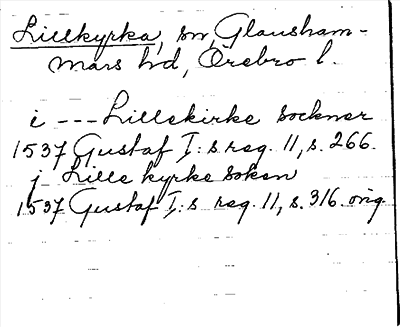 Lillkyrka, sn, Glansham-
mars hd, Örebro l.
i --- Lillekirke sockner
1537 Gustaf I:s reg. 11, s. 266.
j Lille kyrke soken
1537 Gustaf I:s reg. 11, s. 316. orig.